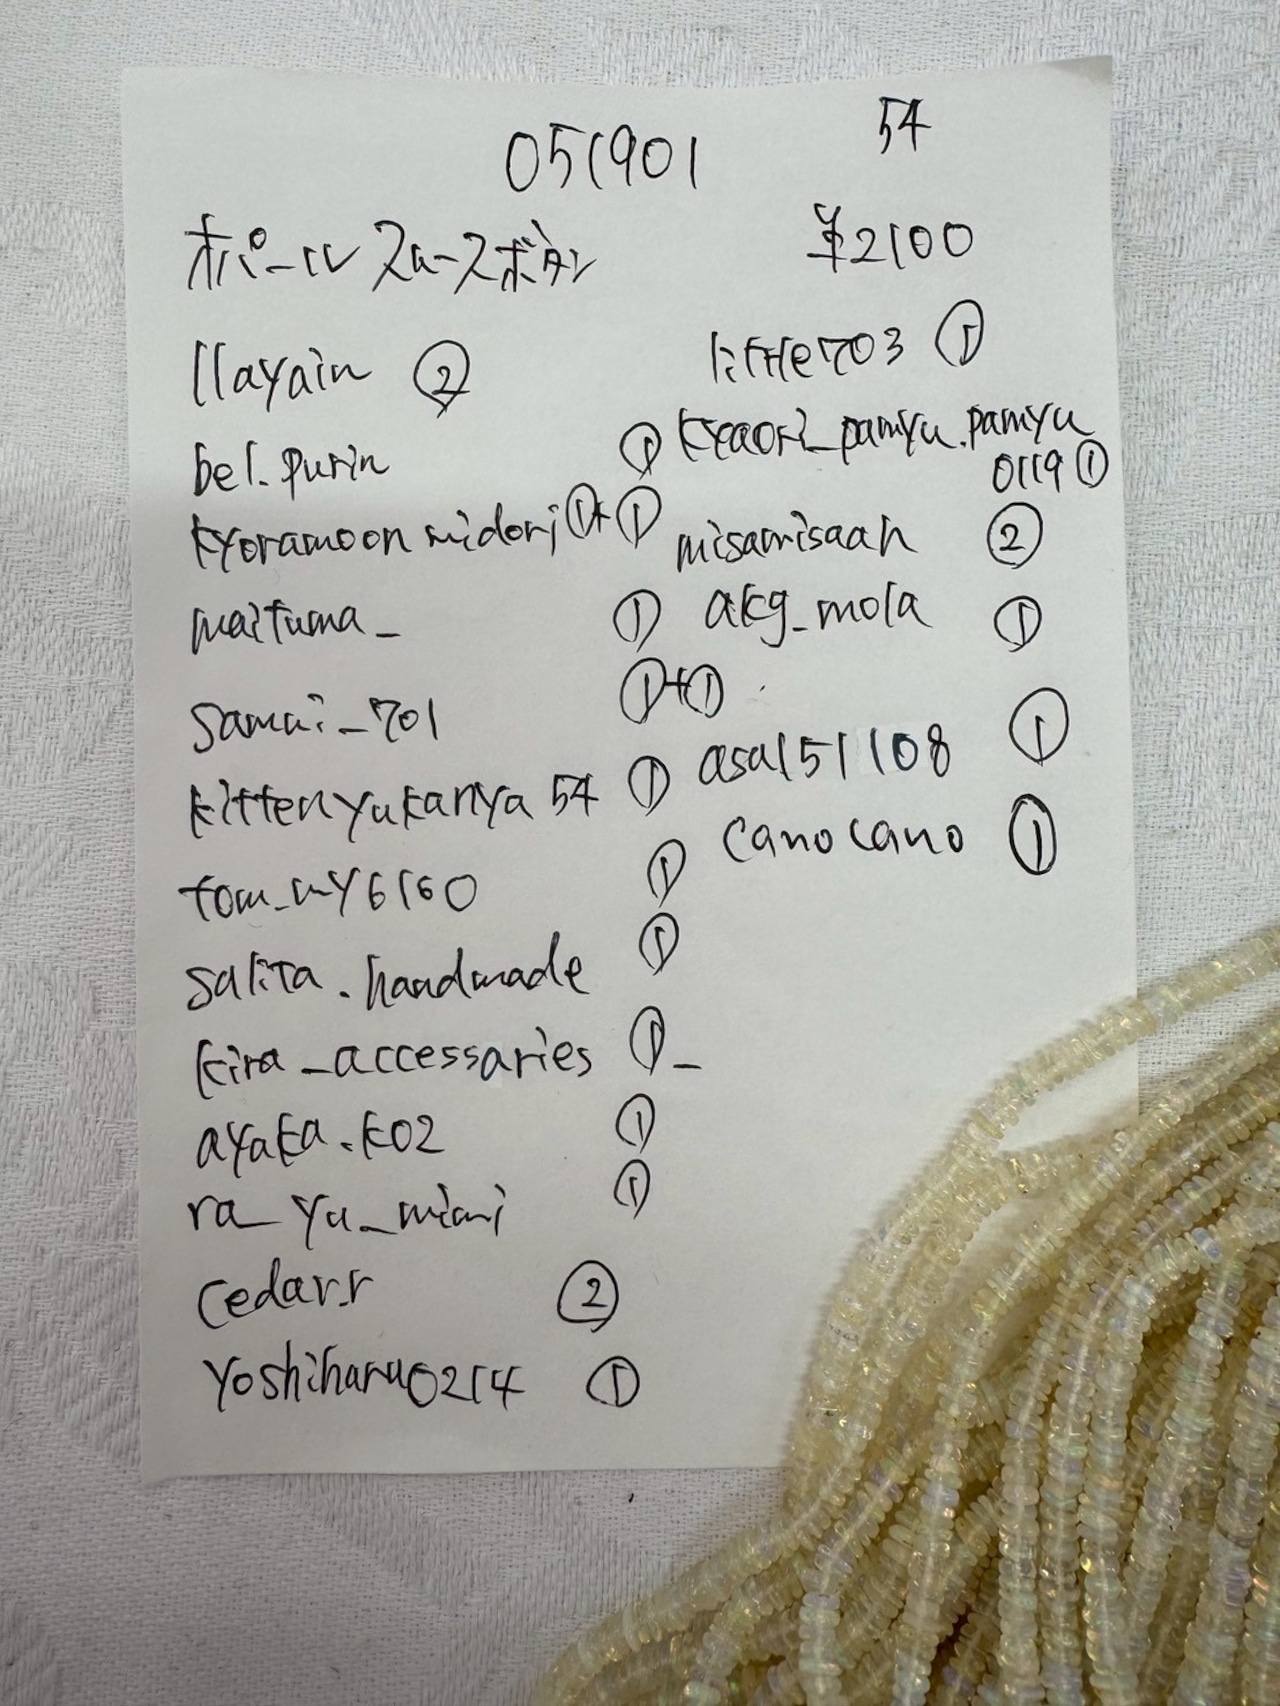 051901
54
オパール スムースボタン
¥2100
llayain ②
bel.purin ①
kyoramoon midori ①+①
maituma_ ①
samai_701 ①+①
kittenyukanya 54 ①
tom_my6160 ①
salita.handmade ①
kira_accessaries ①_
ayaka.k02 ①
ra_yu_mimi ①
cedar.r ②
yoshiharu0214 ①
little703 ①
kyaori_pamyu.pamyu
0119 ①
misamisaah ②
akg_mola ①
asa151108 ①
canocano ①